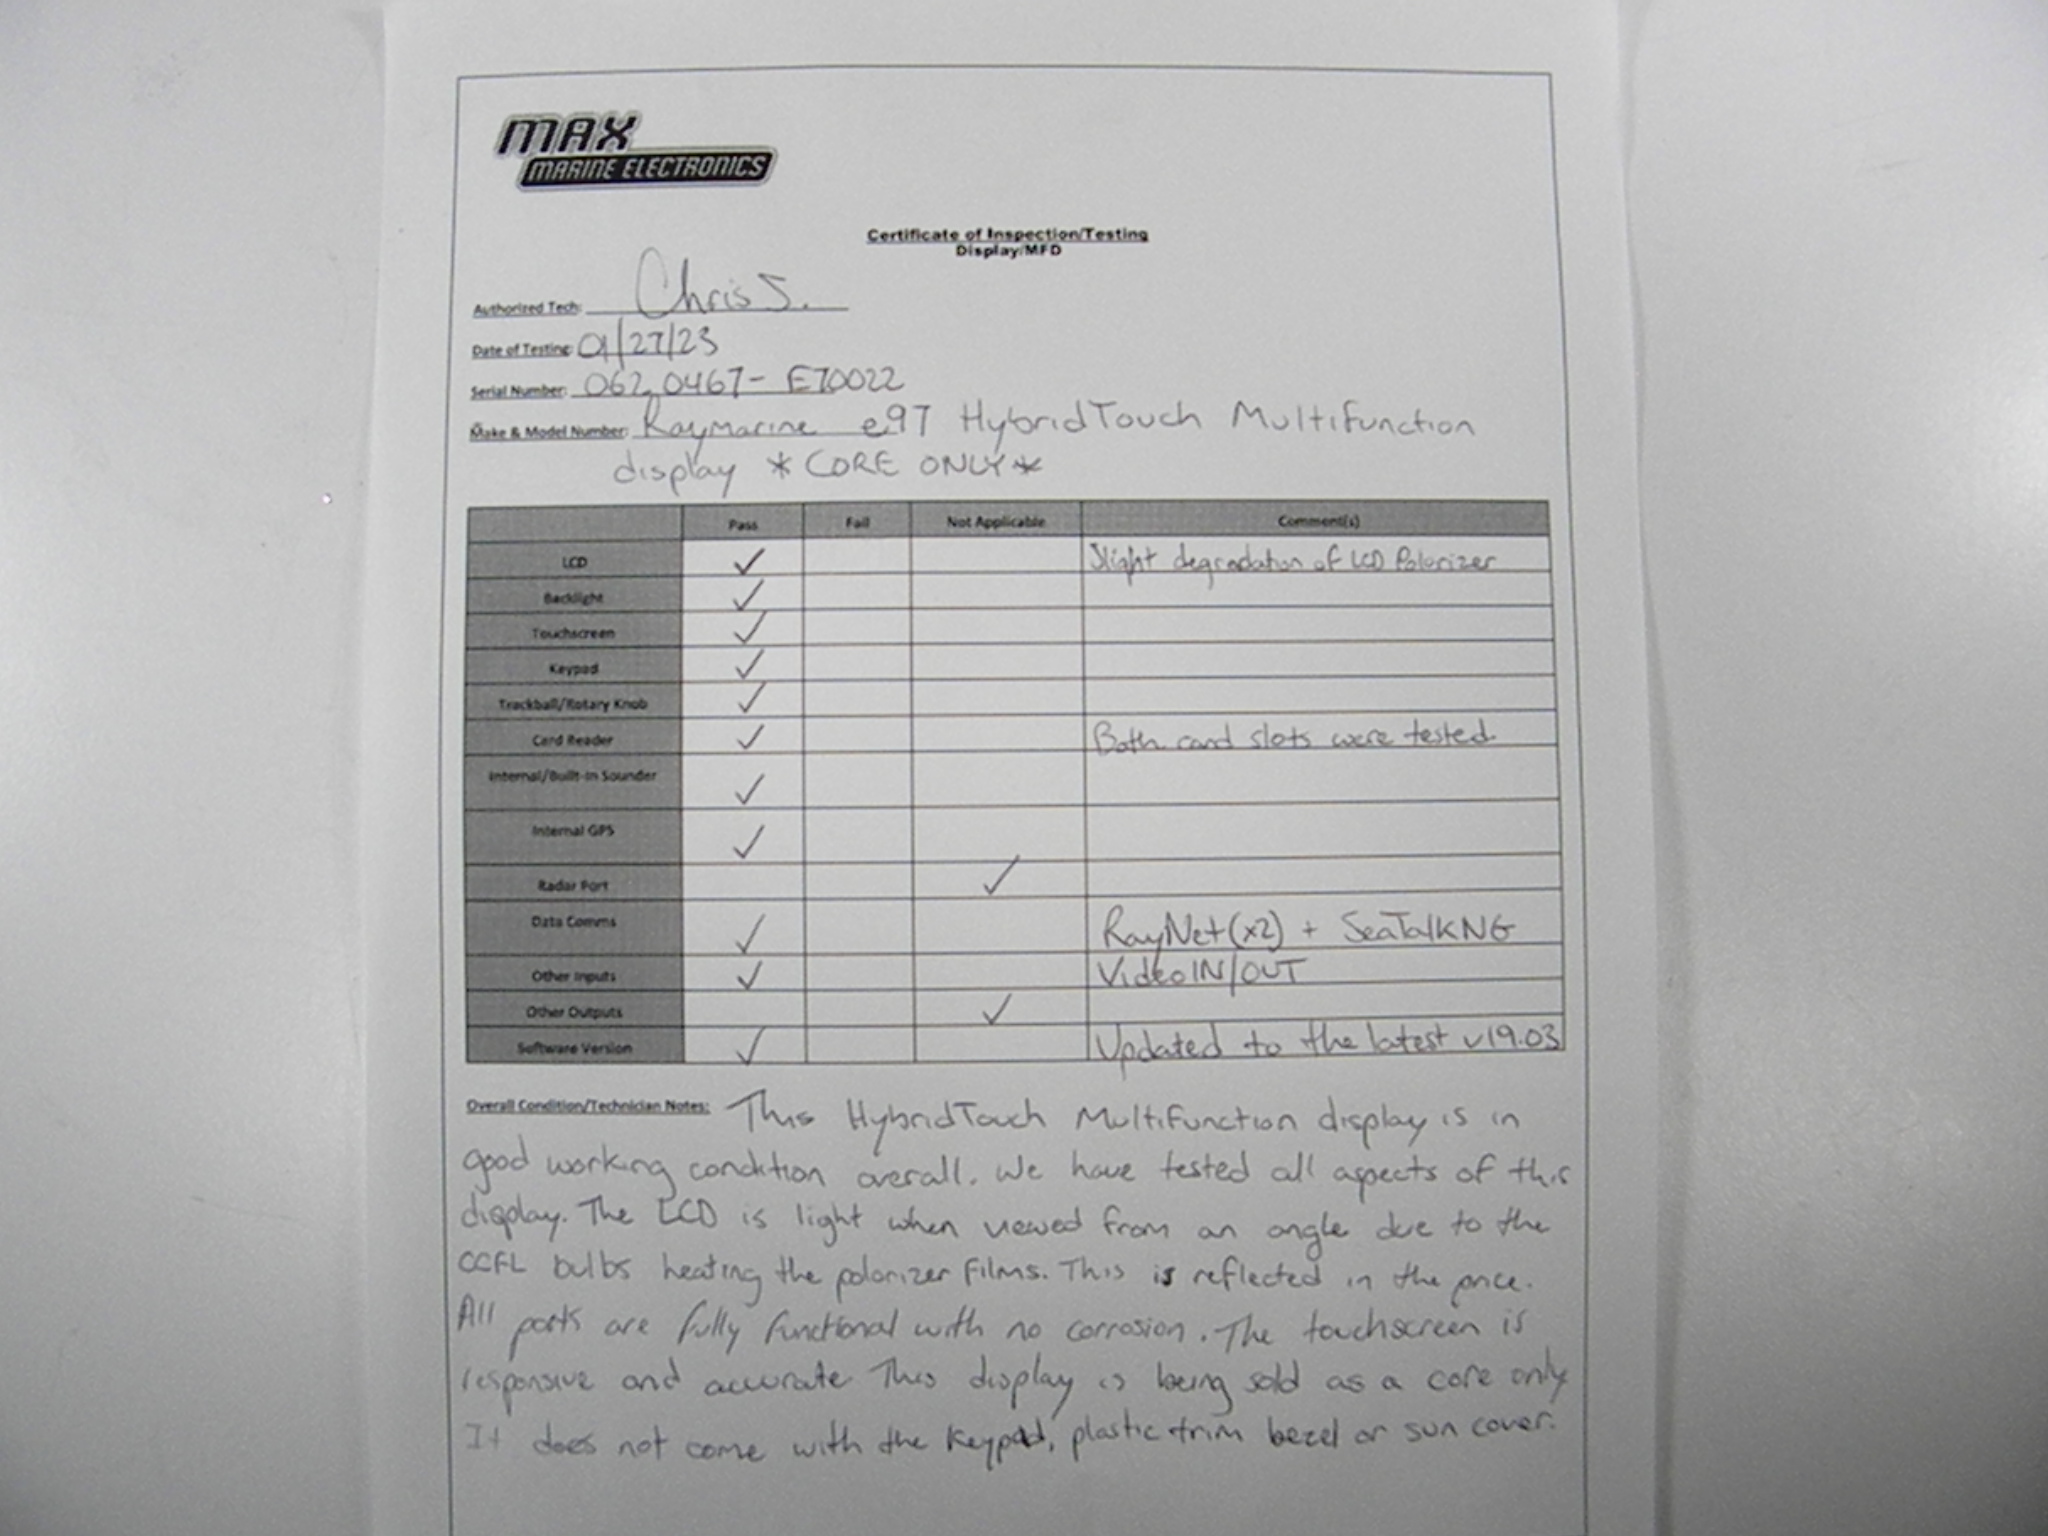 MAX
MARINE ELECTRONICS
Certificate of Inspection/Testing
Display/MFD
Authorized Tech: Chris S.
Date of Testing: 01/27/23
Serial Number: 0620467- E70022
Make & Model Number: Raymarine e97 HybridTouch Multifunction
display *CORE ONLY*
Pass Fail Not Applicable Comment(s)
LCD ✓ Slight degradation of LCD Polorizer
Backlight ✓
Touchscreen ✓
Keypad ✓
Trackball/Rotary Knob ✓
Card Reader ✓ Both card slots were tested.
Internal/Built-In Sounder ✓
Internal GPS ✓
Radar Port ✓
Data Comms ✓ RayNet(x2) + SeaTalkNG
Other Inputs ✓ Video IN/OUT
Other Outputs ✓
Software Version ✓ Updated to the latest v19.03
Overall Condition/Technician Notes: This HybridTouch Multifunction display is in
good working condition overall. We have tested all aspects of this
display. The LCD is light when viewed from an angle due to the
CCFL bulbs heating the polorizer films. This is reflected in the price.
All ports are fully functional with no corrosion. The touchscreen is
responsive and accurate. This display is being sold as a core only
It does not come with the keypad, plastic trim bezel or sun cover.